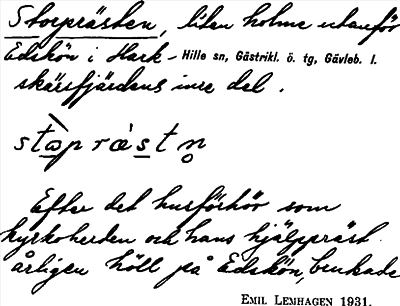 Storprästen, liten holme utanför
Edskön i Hark- Hille sn, Gästrikl. ö. tg, Gävleb. l.
skärsfjärdens inre del.
stɷ̀præ̀stn̥
Efter det husförhör som
kyrkoherden och hans hjälppräst
årligen höll på Edskön, brukade
EMIL LEMHAGEN 1931.